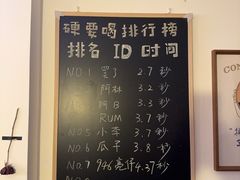 硬要喝排行榜
排名 ID 时间
NO.1 罢了 2.7秒
阿林 3.2秒
阿日 3.3秒
RUM 3.7秒
NO.5 小李 3.7秒
NO.6 瓜子 3.8秒
No.7 946亮仔 4.27秒
CON